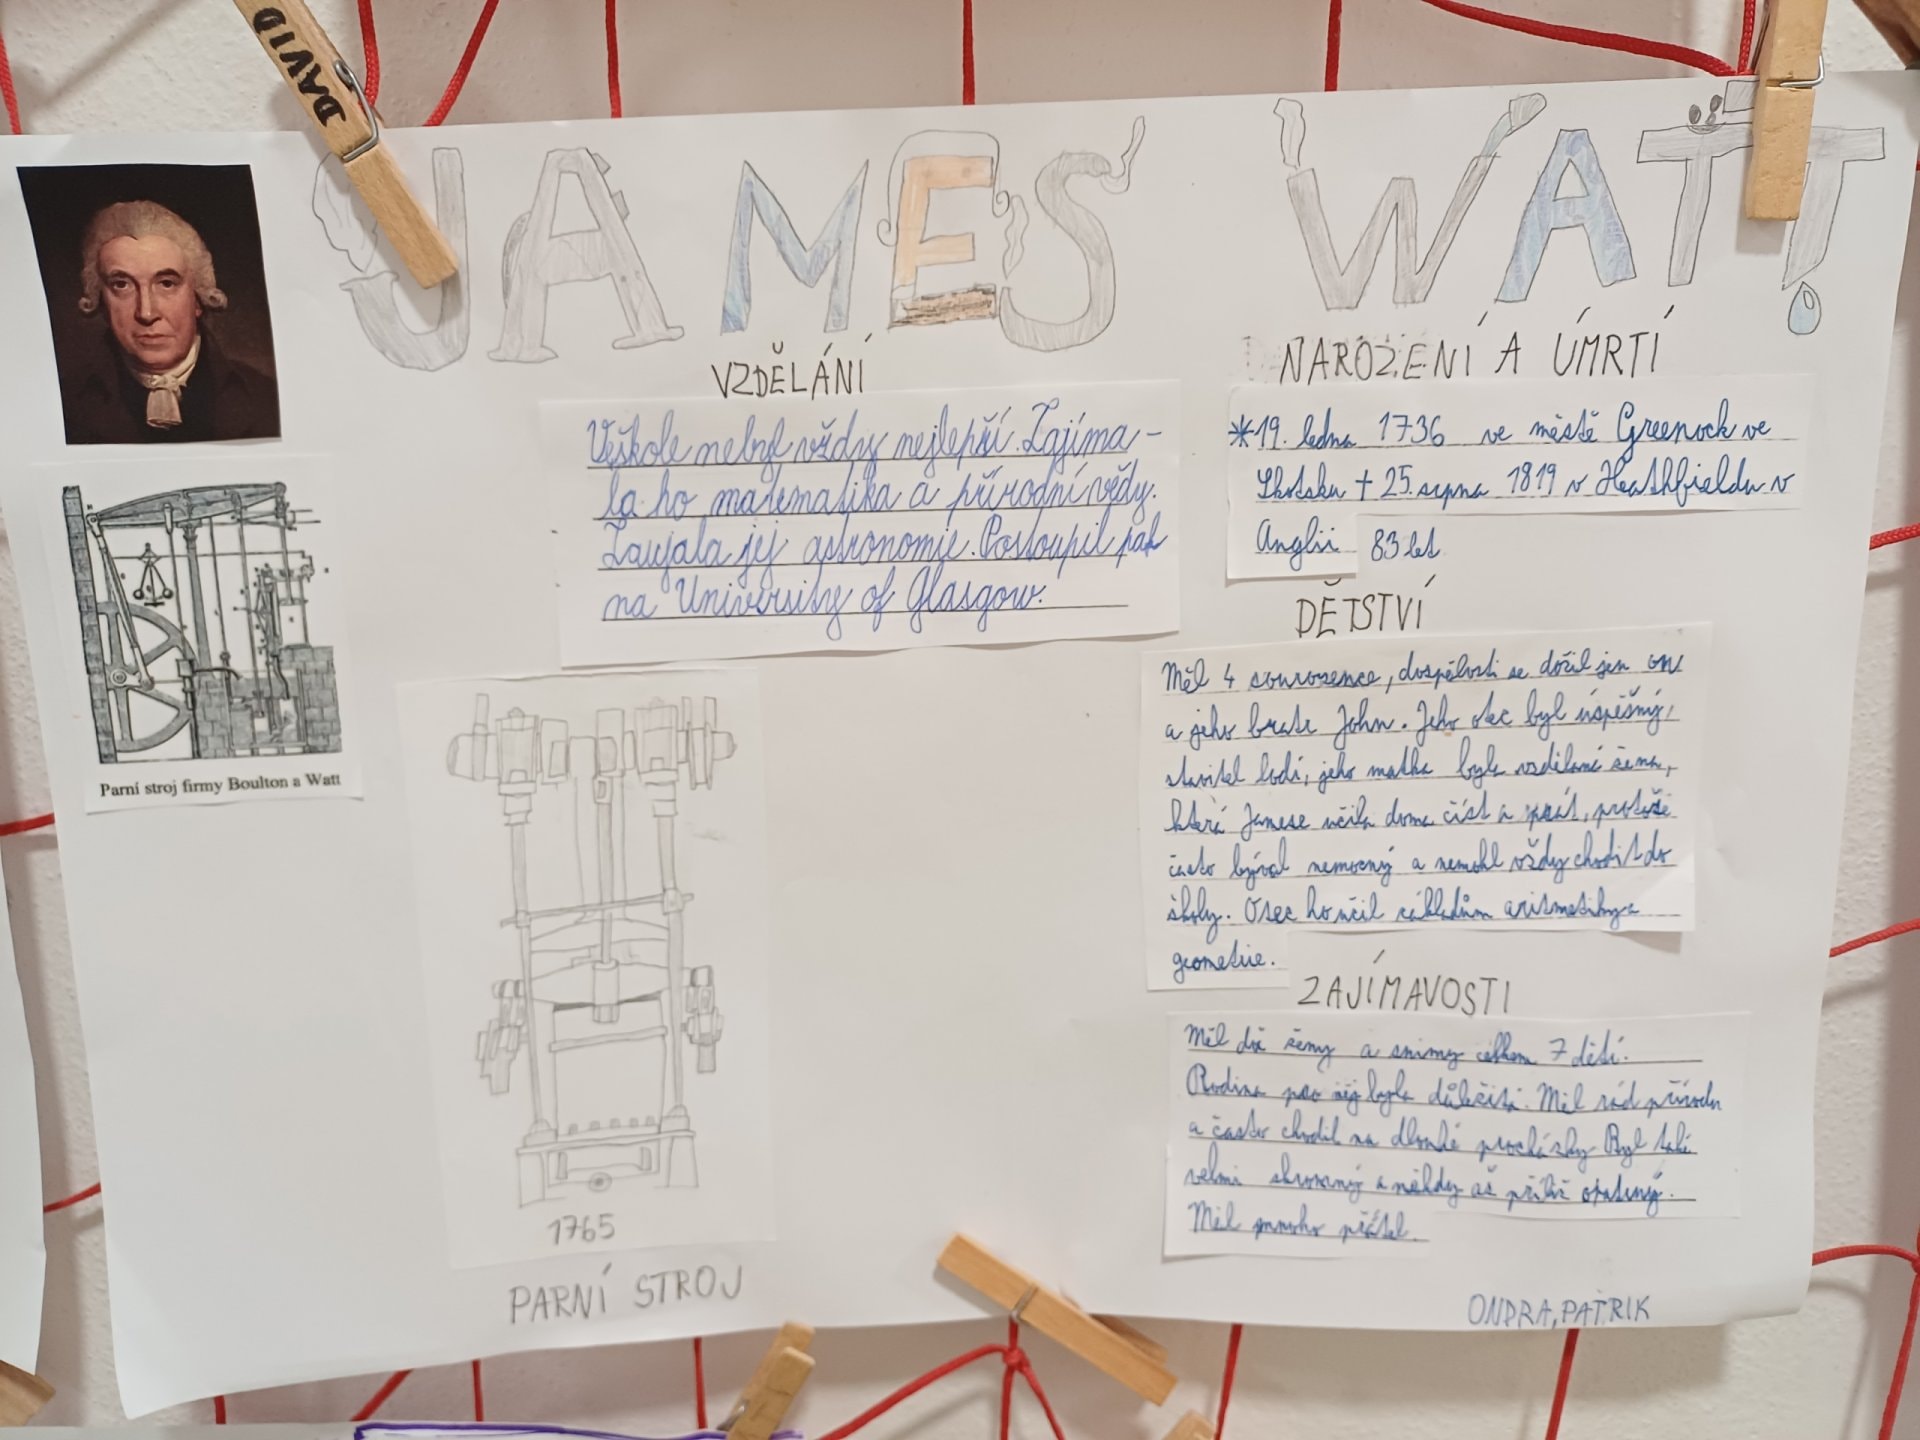 DAVID
JAMES WATT
VZDĚLÁNÍ
Veškole nebyl vždy nejlepší. Zajíma-
la ho matematika a přírodní vědy.
Zaujala jej astronomie. Postoupil pak
na University of Glasgow.
Parní stroj firmy Boulton a Watt
1765
PARNÍ STROJ
NAROZENÍ A ÚMRTÍ
*19. ledna 1736 ve městě Greenock ve
Skotsku + 25. srpna 1819 v Heathfieldu v
Anglii 83 let
DĚTSTVÍ
Měl 4 sourozence, dospělosti se dožil jen on
a jeho bratr John. Jeho otec byl úspěšný,
stavitel lodí, jeho matka byla vzdělaná žena,
která Jamese učila doma číst a psát, protože
často býval nemocný a nemohl vždy chodit do
školy. Otec ho učil základům aritmetiky a
geometrie.
ZAJÍMAVOSTI
Měl dvě ženy a snimy celkem 7 dětí.
Rodina pro něj byla důležitá. Měl rád přírodu
a často chodil na dlouhé procházky Byl také
velmi skromný a někdy až příliš opatrný.
Měl mnoho přátel.
ONDRA, PATRIK